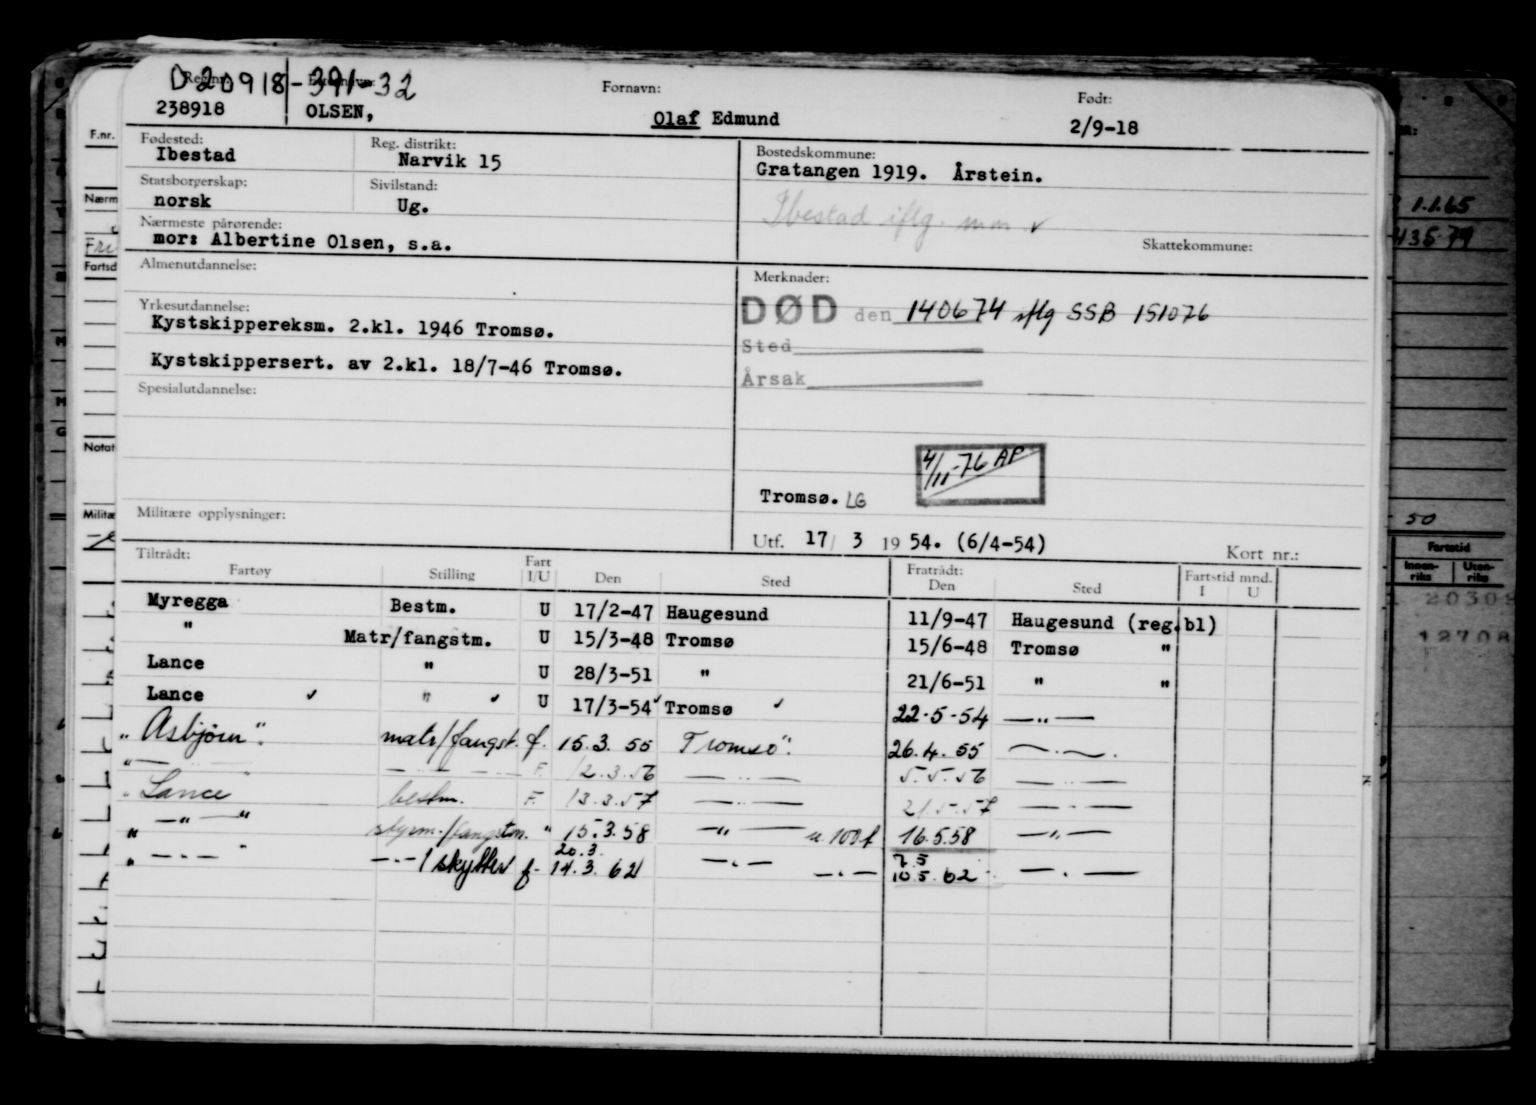 Reg.nr. D 20918-391-32 Etternavn: Fornavn: Født:
238918 OLSEN, Olaf Edmund 2/9-18
Fødested: Reg. distrikt: Bostedskommune:
Ibestad Narvik 15 Gratangen 1919. Årstein.
Statsborgerskap: Sivilstand:
norsk Ug. Ibestad iflg. mm ✓
Nærmeste pårørende: Skattekommune:
mor: Albertine Olsen, s.a.
Almenutdannelse: Merknader:
DØD den 140674 iflg SSB 151076
Yrkesutdannelse:
Kystskippereksm. 2.kl. 1946 Tromsø. Sted
Kystskippersert. av 2.kl. 18/7-46 Tromsø. Årsak
Spesialutdannelse:
4/11-76 AP
Tromsø. LG
Militære opplysninger: Utf. 17/ 3 19 54. (6/4-54) Kort nr.:
Tiltrådt: Fratrådt: Fartstid mnd.
Fartøy Stilling Fart I/U Den Sted Den Sted I U
Myregga Bestm. U 17/2-47 Haugesund 11/9-47 Haugesund (reg.bl)
" Matr/fangstm. U 15/3-48 Tromsø 15/6-48 Tromsø "
Lance " U 28/3-51 " 21/6-51 " "
Lance ✓ " ✓ U 17/3-54 ✓ Tromsø ✓ 22-5-54 —"—
"Asbjörn". matr/fangst. f. 15.3.55 Tromsø". 26.4.55 —.—.
"— — — F. 12.3.56 —"— 5.5.56 —"—
"Lance bestm. F. 13.3.57 —"— 21.5.57 —"—
" —"— " styrm./fangstm. " 15.3.58 —"— u.100f 16.5.58 —"—
20.3. 7.5
" —"— " —"— / skytter f- 14.3.62 —"— —"— 10.5.62 —"—
F.nr.
Nærm
Fartsd
Notat
Militæ
1.1.65
435 79
50
Fartstid
Innen-riks Uten-riks